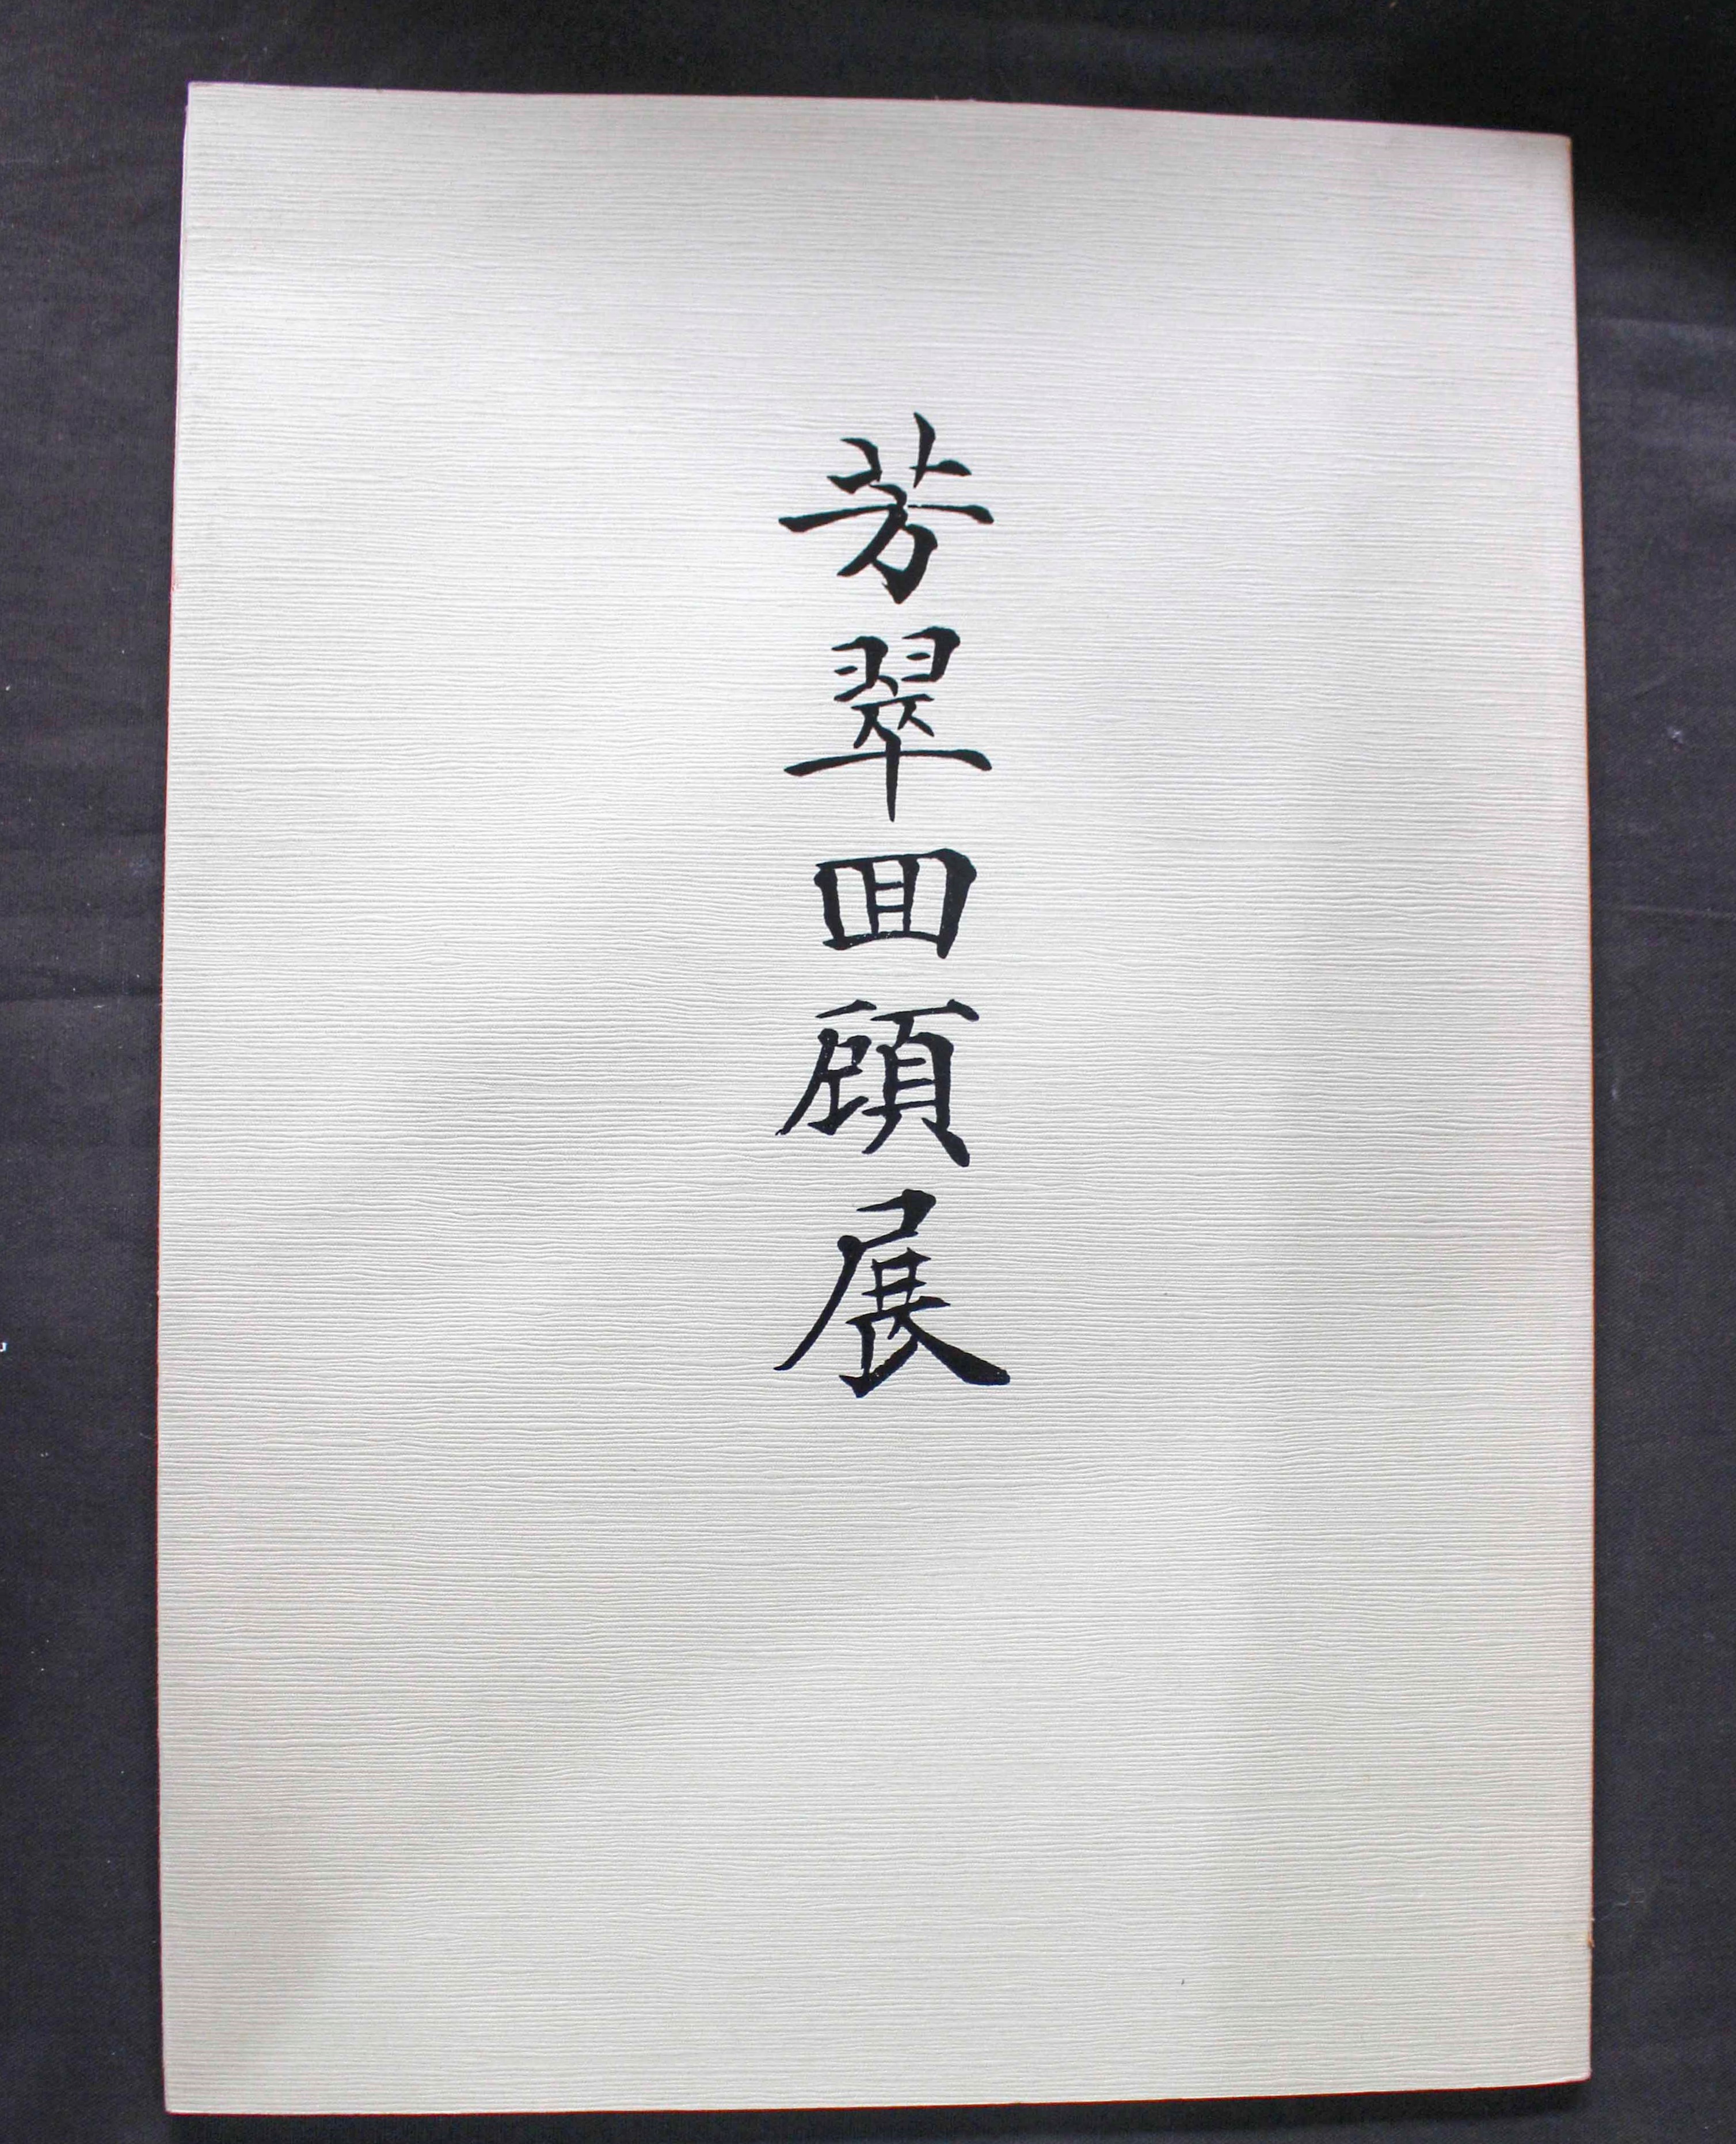 芳翠囬顧展